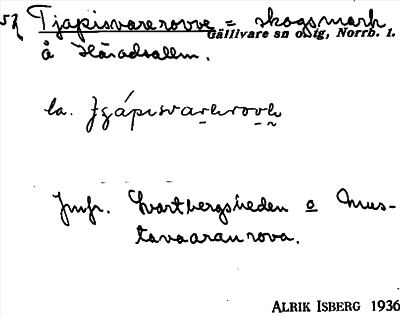 57 Tjapisvarerovve = skogsmark
Gällivare sn o. tg, Norrb. l.
å Häradsallm.
la.
Jmfr. Svartbergsheden o Mus-
tavaaranrova.
ALRIK ISBERG 1936